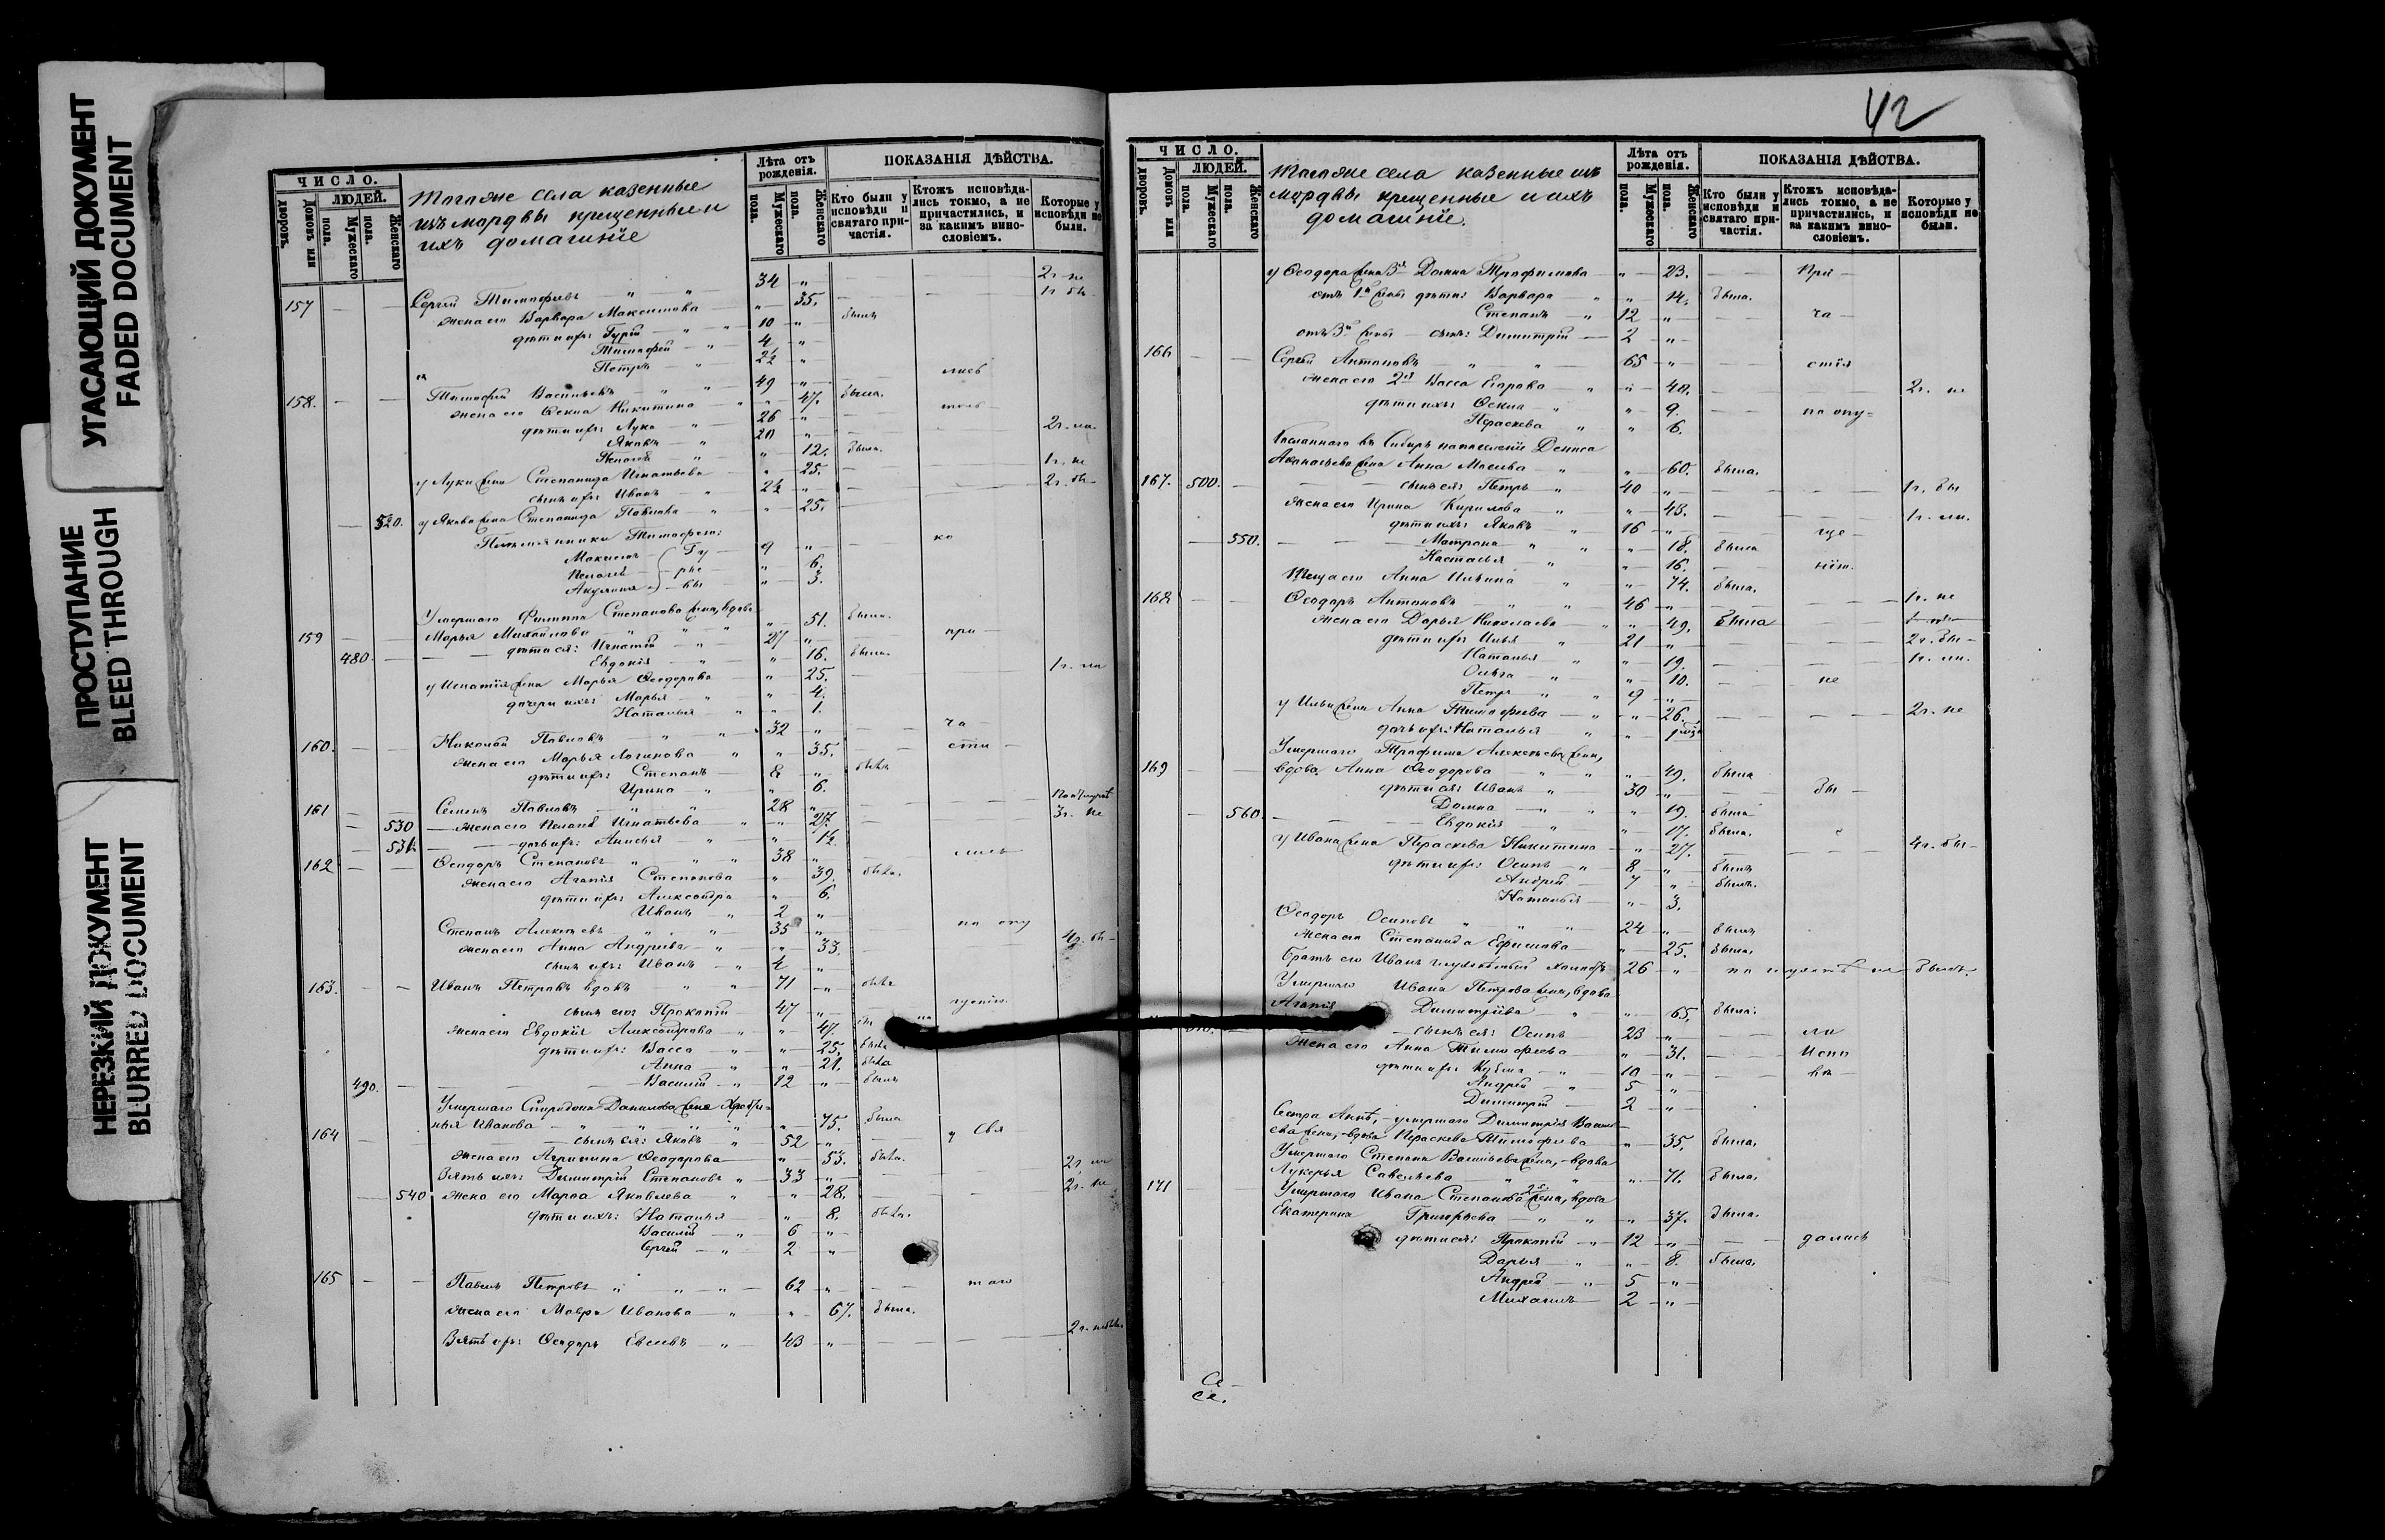 УГАСАЮЩИЙ ДОКУМЕНТ
FADED DOCUMENT
ПРОСТУПАНИЕ
BLEED THROUGH
НЕРЕЗКИЙ ДОКУМЕНТ
BLURRED DOCUMENT
ЧИСЛО.
ЛЮДЕЙ.
Домовъ или дворовъ.
Мужескаго пола.
Женскаго пола.
Тогоже села казенные
изъ мордвы крещенные и
ихъ домашніе
Лѣта отъ рожденія.
Мужескаго пола.
Женскаго пола.
ПОКАЗАНІЯ ДѢЙСТВА.
Кто были у исповѣди и святаго причастія.
Ктожъ исповѣдались токмо, а не причастились, и за какимъ винословіемъ.
Которые у исповѣди не были.
157 Сергѣй Тимофеевъ 34 2г. не
жена его Варвара Максимова 35. 1г. бы
дѣти ихъ: Гурій 10 былъ
Тимофей 4
Петръ 2½
158. Тимофей Васильевъ 49 лись
жена его Ѳекла Никитина 47. была.
дѣти ихъ: Лука 26 толь
Яковъ 20 2г. ли
Пелагея 12. была.
у Луки жена Степанида Игнатьева 25. 1г. не
сынъ ихъ: Иванъ 2½ 2г. бы
520. у Якова жена Степанида Павлова 25.
Племянники Тимофею:
Максимъ Гу 9 ко
Пелагея рье 6.
Акулина вы 3.
Умершаго Филиппа Степанова жена, вдова
159 Марья Михайлова 51. была.
480. дѣти ея: Игнатій 27 при
Евдокія 16. была.
у Игнатія жена Марья Ѳеодорова 25. 1г. ли
дочери ихъ: Марья 4.
Наталья 1.
160. Николай Павловъ 32 ча
жена его Марья Логинова 35. сти
дѣти ихъ: Степанъ 8 былъ
Ирина 6.
161 Семенъ Павловъ 28
530 жена его Пелагея Игнатьева 27. 3г. не
531. дочь ихъ: Анисья 1½.
162 Ѳеодоръ Степановъ 38 лись
жена его Агапія Степанова 39. была.
дѣти ихъ: Александра 6.
Иванъ 2
Степанъ Алексѣевъ 35 по опу
жена его Анна Андреева 33. 4г. бы
сынъ ихъ: Иванъ 4
163. Иванъ Петровъ вдовъ 71 былъ
сынъ его: Прокопій 47
жена его Евдокія Александрова 47.
дѣти ихъ: Васса 25. была
Анна 21. была
490. Василій 12 былъ
Умершаго Спиридона Данилова жена
Иванова 75. была
164 сынъ ея: Яковъ 52 свя
жена его Агрипина Ѳеодорова 53. была.
Зять ихъ: Димитрій Степановъ 33 2г. ли
540 жена его Марѳа Яковлева 28. 2г. не
дѣти ихъ: Наталья 8. была.
Василій 6
Сергѣй 2
165 Павелъ Петровъ 62 таго
жена его Мавра Иванова 67. была.
Зять ихъ: Ѳеодоръ Евсеевъ 43
42
ЧИСЛО.
ЛЮДЕЙ.
Домовъ или дворовъ.
Мужескаго пола.
Женскаго пола.
Тогоже села казенные изъ
мордвы крещенные и ихъ
домашніе.
Лѣта отъ рожденія.
Мужескаго пола.
Женскаго пола.
ПОКАЗАНІЯ ДѢЙСТВА.
Кто были у исповѣди и святаго причастія.
Ктожъ исповѣдались токмо, а не причастились, и за какимъ винословіемъ.
Которые у исповѣди не были.
у Ѳеодора жена 3я Домна Трофимова 23. при
отъ 1й жены дѣти: Варвара 14. была.
Степанъ 12 ча
отъ 3й жены сынъ: Димитрій 2
166 Сергѣй Антоновъ 65 стія
жена его 2я Васса Егорова 40. 2г. не
дѣти ихъ: Ѳекла 9. по опу
Параскева 6.
Сосланнаго въ Сибирь на поселеніе Дениса
жена Анна 60. была.
167. 500. сынъ ея: Петръ 40 1г. бы
жена его Ирина Кирилова 43. 1г. ли.
дѣти ихъ: Яковъ 16 ще
550. Матрона 18. была
Настасья 16. нію.
Теща его Анна Ильина 74. была.
168 Ѳеодоръ Антоновъ 46 1г. не
жена его Дарья Николаева 49. была
дѣти ихъ: Илья 21 2г. бы
Наталья 19. 1г. ли.
Ольга 10. не
Петръ 9
у Ильи жена Анна Тимофеева 26. 2г. не
дочь ихъ: Наталья
Умершаго Трофима Алексѣева жена,
169 вдова Анна Ѳеодорова 49. была
дѣти ея: Иванъ 30 бы
Домна 19. была
560. Евдокія 17. была.
у Ивана жена Параскева Никитина 27. 4г. бы
дѣти ихъ: Осипъ 8 былъ
Андрей 7 былъ.
Наталья 3.
Ѳеодоръ Осиповъ 24 былъ
жена его Степанида Ефимова 25. была.
Братъ его Иванъ 26 не былъ.
Умершаго Ивана Петрова жена, вдова
Агапія Димитріева 65. была.
сынъ ея: Осипъ 23 ли
жена его Анна Тимофеева 31. испо
дѣти ихъ: Кузма 10 вѣ
Андрей 5
Димитрій 2
Сестра Аннѣ, умершаго Димитрія Василь
ева жена, вдова Параскева Тимофеева 35. была.
Умершаго Степана Васильева жена, вдова
Лукерья Савельева 71. была.
171 Умершаго Ивана Степанова 2я жена, вдова
Екатерина Григорьева 37. была.
дѣти ея: Прокопій 12 дались
Дарья 8. была.
Андрей 5
Михаилъ 2